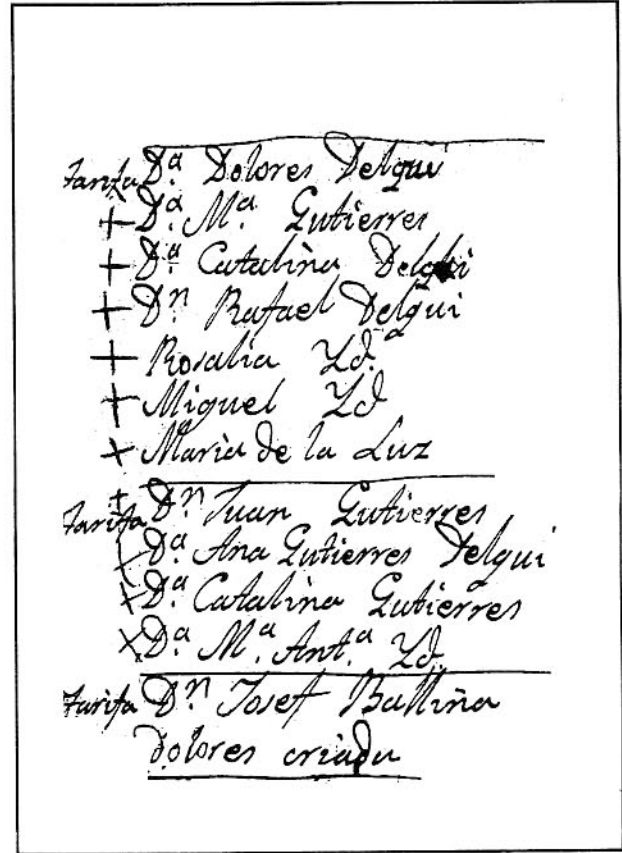 Tarifa Dª Dolores Delgui
+ Dª Mª Gutierres
+ Dª Catalina Delgui
+ Dⁿ Rafael Delgui
+ Rosalia Yd.
+ Miguel Yd
+ Maria de la Luz
+ Tarifa Dⁿ Juan Gutierres
+ Dª Ana Gutierres Delgui
+ Dª Catalina Gutierres
+ Dª Mª Antª Yd.
Tarifa Dⁿ Josef Balliña
Dolores criada